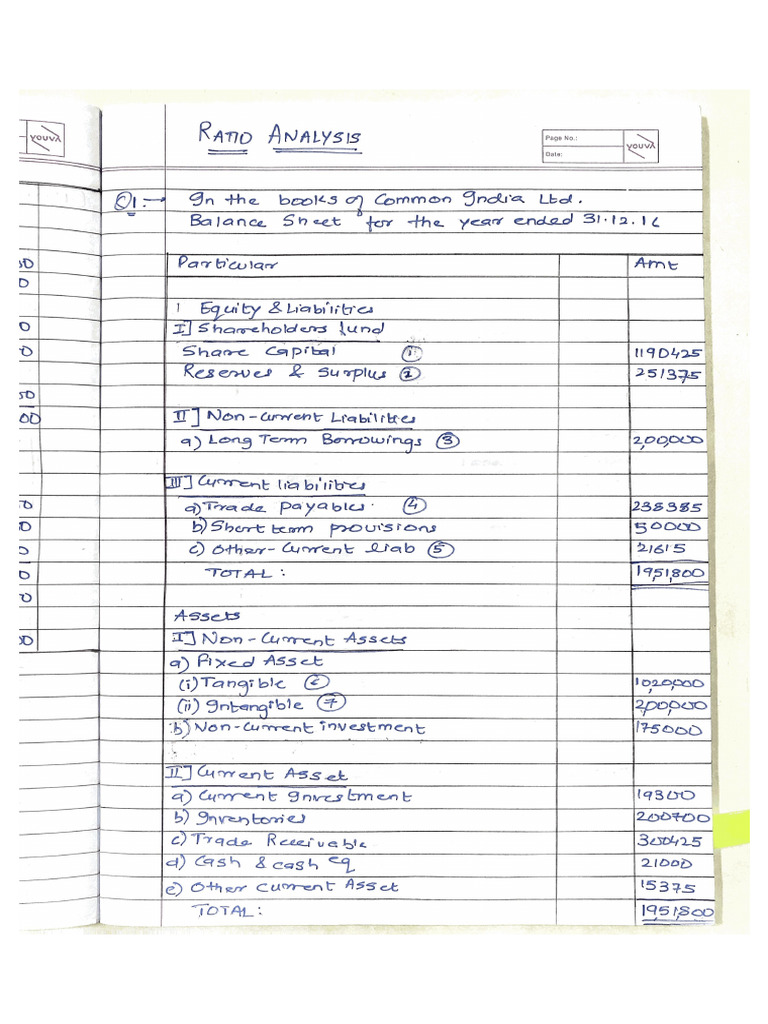 youva
RATIO ANALYSIS
Page No.:
Date:
youva
Q1:→ In the books of Common India Ltd.
Balance Sheet for the year ended 31.12.16
Particular Amt
I Equity & Liabilities
I] Shareholders fund
Share Capital ① 1190425
Reserves & Surplus ② 251375
II] Non-current Liabilities
a) Long Term Borrowings ③ 2,00,000
III] Current liabilities
a) Trade payables ④ 238385
b) Short term provisions 50000
c) Other-Current liab ⑤ 21615
TOTAL: 19,51,800
Assets
I] Non-Current Assets
a) Fixed Asset
(i) Tangible ⑥ 10,20,000
(ii) Intangible ⑦ 2,00,000
b) Non-current investment 175000
II] Current Asset
a) Current Investment 19300
b) Inventories 200700
c) Trade Receivable 300425
d) Cash & cash eq 21000
e) Other Current Asset 15375
TOTAL: 19,51,800